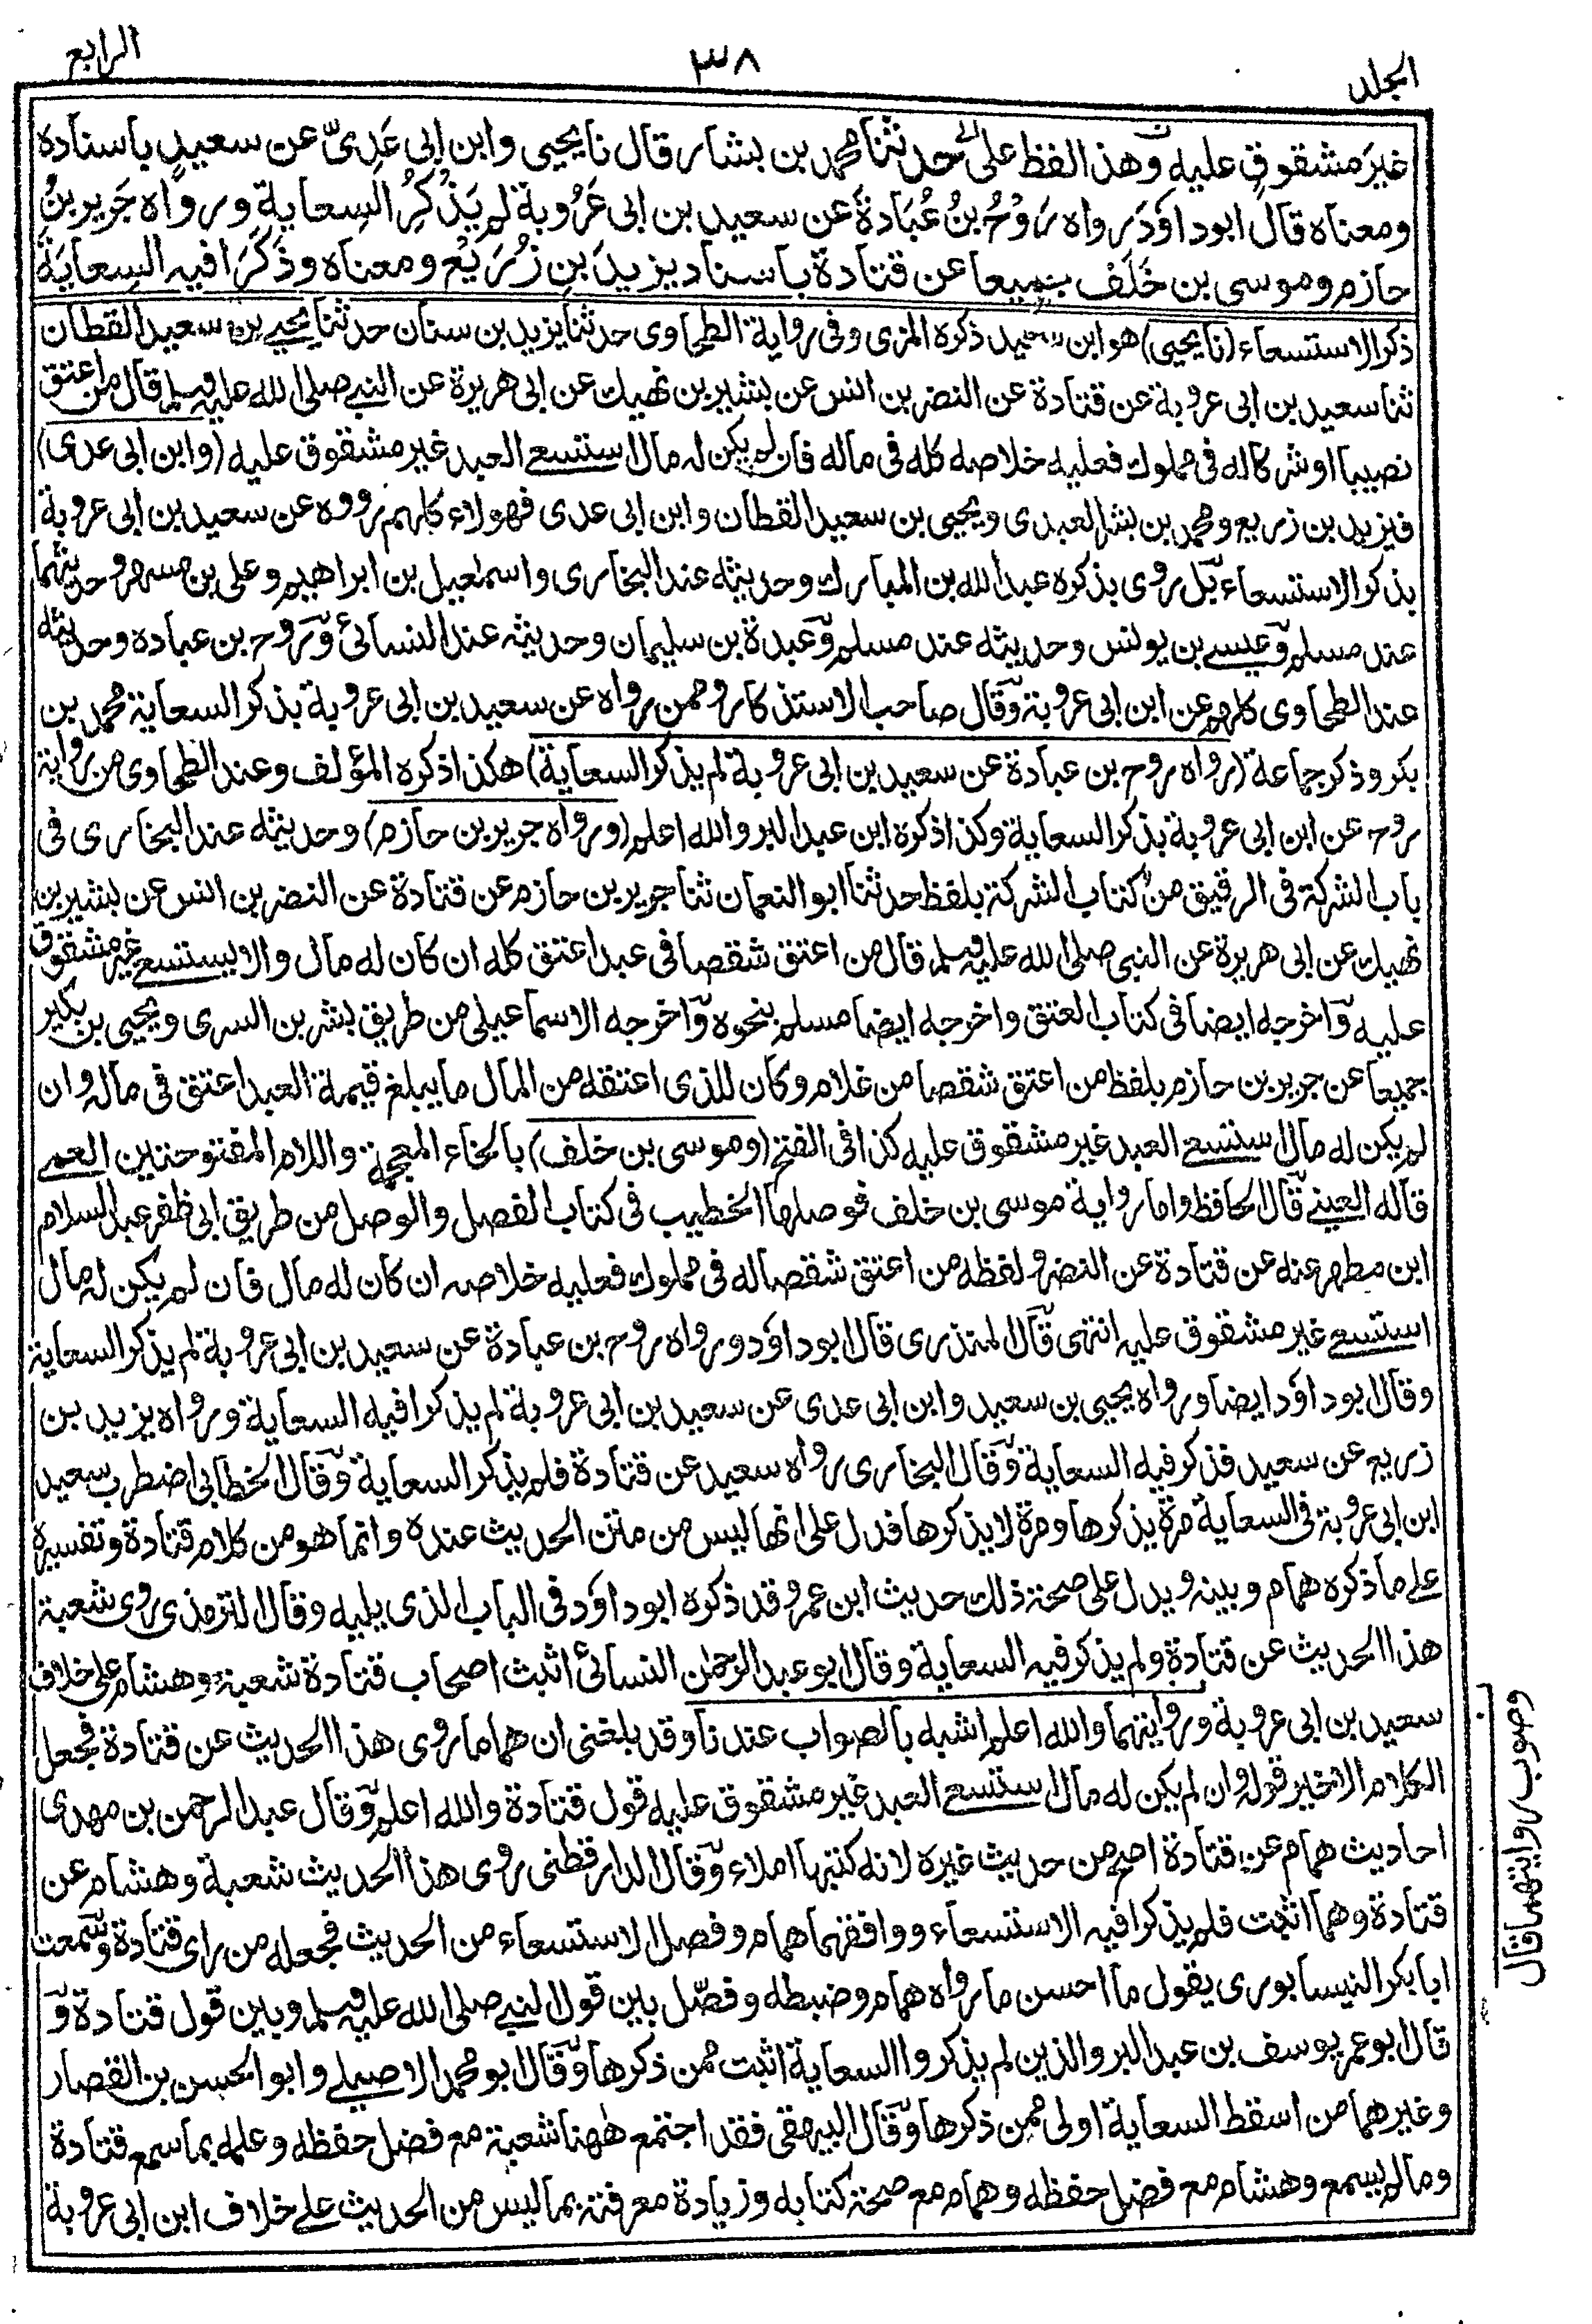 المجلد
٣٨
الرابع
غيرَ مشقوقٍ عليه وهذا لفظ علي حدثنا محمد بن بشار قال نا يحيى وابن ابى عَدِىّ عن سعيدٍ باسناده
ومعناه قال ابوداوَد رواه رَوْحُ بنُ عُبَادةَ عن سعيد بن ابى عَرُوبةَ لم يَذْكُرِ السعايةَ ورواه جَرير بنُ
حازم وموسى بن خَلَفْ جميعا عن قتادةَ باسناد يزيدَ بنِ زُرَيْع ومعناه وذَكَرَا فيه السعايَةَ
ذكر الاستسعاء (نا يحيى) هو ابن سعيد ذكره المزى وفى رواية الطحاوى حدثنا يزيد بن سنان حدثنا يحيى بن سعيد القطان
ثنا سعيد بن ابى عروبة عن قتادة عن النضر بن انس عن بشير بن نهيك عن ابى هريرة عن النبي صلى الله عليه وسلم قال من اعتق
نصيبا او شركا له فى مملوك فعليه خلاصه كله فى ماله فان لم يكن له مال استسعى العبد غير مشقوق عليه (وابن ابى عدى)
فيزيد بن زريع ومحمد بن بشر العبدى ويحيى بن سعيد القطان وابن ابى عدى فهولاء كلهم رووه عن سعيد بن ابى عروبة
بذكر الاستسعاء بل روى بذكره عبد الله بن المبارك وحديثه عند البخارى واسمعيل بن ابراهيم وعلى بن مسهر وحديثهما
عند مسلم وعيسى بن يونس وحديثه عند مسلم وعبدة بن سليمان وحديثه عند النسائى وروح بن عباده وحديثه
عند الطحاوى كلهم عن ابن ابى عروبة وقال صاحب الاستذكار وممن رواه عن سعيد بن ابى عروبة بذكر السعاية محمد بن
بكر وذكر جماعة (رواه روح بن عبادة عن سعيد بن ابى عروبة لم يذكر السعاية) هكذا ذكره المؤلف وعند الطحاوى من رواية
روح عن ابن ابى عروبة بذكر السعاية وكذا ذكره ابن عبد البر والله اعلم (ورواه جرير بن حازم) وحديثه عند البخارى فى
باب الشركة فى الرقيق من كتاب الشركة بلفظ حدثنا ابو النعمان ثنا جرير بن حازم عن قتادة عن النضر بن انس عن بشير بن
نهيك عن ابى هريرة عن النبى صلى الله عليه وسلم قال من اعتق شقصا فى عبد اعتق كله ان كان له مال والا يستسعى غير مشقوق
عليه واخرجه ايضا فى كتاب العتق واخرجه ايضا مسلم بنحوه واخرجه الاسماعيلى من طريق بشر بن السرى ويحيى بن بكير
جميعا عن جرير بن حازم بلفظ من اعتق شقصا من غلام وكان للذى اعتقه من المال ما يبلغ قيمة العبد اعتق فى ماله وان
لم يكن له مال استسعى العبد غير مشقوق عليه كذا فى الفتح (وموسى بن خلف) بالخاء المعجمة واللام المفتوحتين العمى
قاله العينى قال الحافظ واما رواية موسى بن خلف فوصلها الخطيب فى كتاب الفصل والوصل من طريق ابى ظفر عبد السلام
ابن مطهر عنه عن قتادة عن النضر ولفظه من اعتق شقصا له فى مملوك فعليه خلاصه ان كان له مال فان لم يكن له مال
استسعى غير مشقوق عليه انتهى قال المنذرى قال ابوداؤد ورواه روح بن عبادة عن سعيد بن ابى عروبة لم يذكر السعاية
وقال ابوداؤد ايضا ورواه يحيى بن سعيد وابن ابى عدى عن سعيد بن ابى عروبة لم يذكرا فيه السعاية ورواه يزيد بن
زريع عن سعيد فذكر فيه السعاية وقال البخارى رواه سعيد عن قتادة فلم يذكر السعاية وقال الخطابى اضطرب سعيد
ابن ابى عروبة فى السعاية مرة يذكرها ومرة لا يذكرها فدل على انها ليس من متن الحديث عنده وانما هو من كلام قتادة وتفسيره
على ما ذكره همام وبينه ويدل على صحة ذلك حديث ابن عمر وقد ذكره ابوداؤد فى الباب الذى يليه وقال الترمذى روى شعبة
هذا الحديث عن قتادة ولم يذكر فيه السعاية وقال ابو عبد الرحمن النسائى اثبت اصحاب قتادة شعبة وهشام على خلاف
سعيد بن ابى عروبة وروايتهما والله اعلم اشبه بالصواب عندنا وقد بلغنى ان هماما روى هذا الحديث عن قتادة فجعل
الكلام الاخير قوله وان لم يكن له مال استسعى العبد غير مشقوق عليه قول قتادة والله اعلم وقال عبد الرحمن بن مهدى
احاديث همام عن قتادة اصح من حديث غيره لانه كتبها املاء وقال الدارقطنى روى هذا الحديث شعبة وهشام عن
قتادة وهما اثبت فلم يذكرا فيه الاستسعاء ووافقهما همام وفصل الاستسعاء من الحديث فجعله من راى قتادة وسمعت
ابا بكر النيسابورى يقول ما احسن ما رواه همام وضبطه وفصّل بين قول النبي صلى الله عليه وسلم وبين قول قتادة و
قال ابو عمر يوسف بن عبد البر والذين لم يذكروا السعاية اثبت ممن ذكرها وقال ابو محمد الاصيلى وابو الحسن بن القصار
وغيرهما من اسقط السعاية اولى ممن ذكرها وقال البيهقى فقد اجتمع ههنا شعبة مع فضل حفظه وعلمه بما سمع قتادة
وما لم يسمع وهشام مع فضل حفظه وهمام مع صحة كتابه وزيادة معرفته بما ليس من الحديث على خلاف ابن ابى عروبة
وصوب روايتهما قال